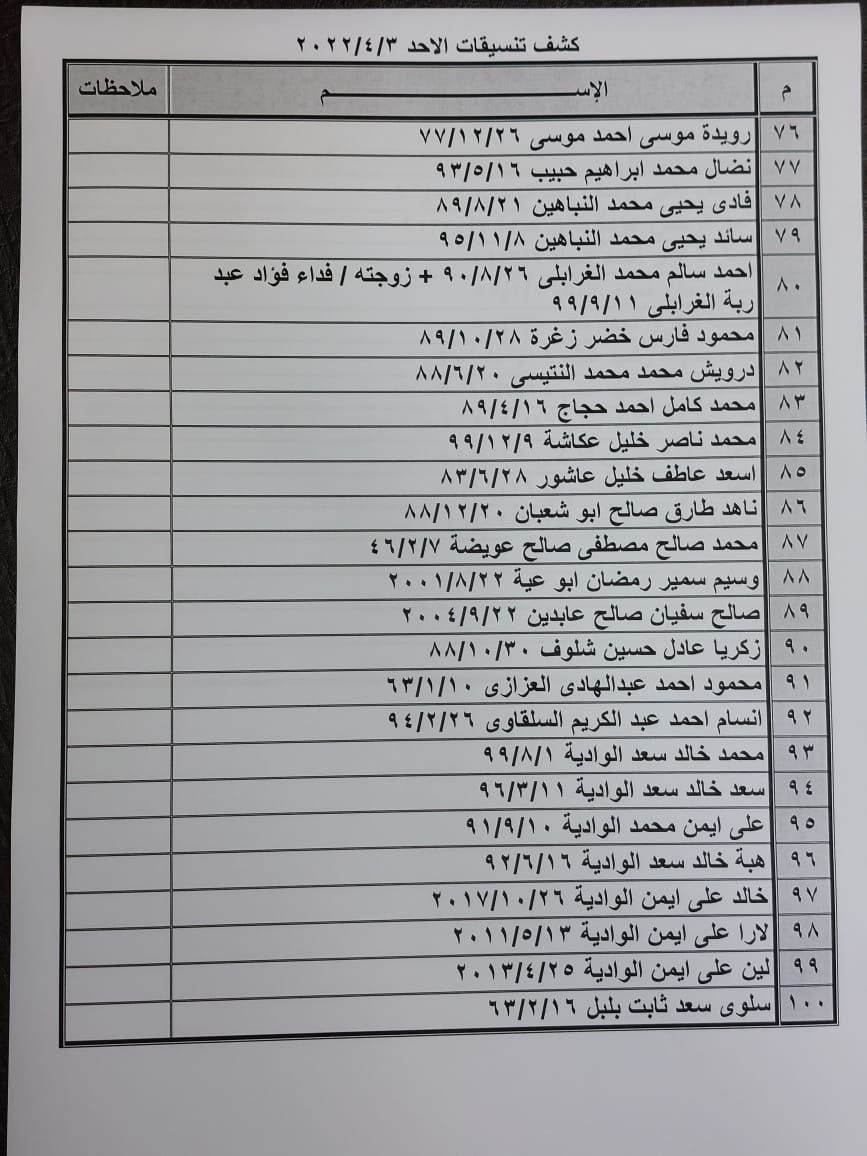 كشف تنسيقات الاحد ٢٠٢٢/٤/٣
م الإســـــــــــم ملاحظات
٧٦ رويدة موسى احمد موسى ٧٧/١٢/٢٦
٧٧ نضال محمد ابراهيم حبيب ٩٣/٥/١٦
٧٨ فادى يحيى محمد النباهين ٨٩/٨/٢١
٧٩ سائد يحيى محمد النباهين ٩٥/١١/٨
٨٠ احمد سالم محمد الغرابلى ٩٠/٨/٢٦ + زوجته / فداء فؤاد عبد
ربة الغرابلى ٩٩/٩/١١
٨١ محمود فارس خضر زغرة ٨٩/١٠/٢٨
٨٢ درويش محمد محمد النتيسى ٨٨/٦/٢٠
٨٣ محمد كامل احمد حجاج ٨٩/٤/١٦
٨٤ محمد ناصر خليل عكاشة ٩٩/١٢/٩
٨٥ اسعد عاطف خليل عاشور ٨٣/٦/٢٨
٨٦ ناهد طارق صالح ابو شعبان ٨٨/١٢/٢٠
٨٧ محمد صالح مصطفى صالح عويضة ٤٦/٢/٧
٨٨ وسيم سمير رمضان ابو عية ٢٠٠١/٨/٢٢
٨٩ صالح سفيان صالح عابدين ٢٠٠٤/٩/٢٢
٩٠ زكريا عادل حسين شلوف ٨٨/١٠/٣٠
٩١ محمود احمد عبدالهادى العزازى ٦٣/١/١٠
٩٢ انسام احمد عبد الكريم السلقاوى ٩٤/٢/٢٦
٩٣ محمد خالد سعد الوادية ٩٩/٨/١
٩٤ سعد خالد سعد الوادية ٩٦/٣/١١
٩٥ على ايمن محمد الوادية ٩١/٩/١٠
٩٦ هبة خالد سعد الوادية ٩٢/٦/١٦
٩٧ خالد على ايمن الوادية ٢٠١٧/١٠/٢٦
٩٨ لارا على ايمن الوادية ٢٠١١/٥/١٣
٩٩ لين على ايمن الوادية ٢٠١٣/٤/٢٥
١٠٠ سلوى سعد ثابت بلبل ٦٣/٢/١٦